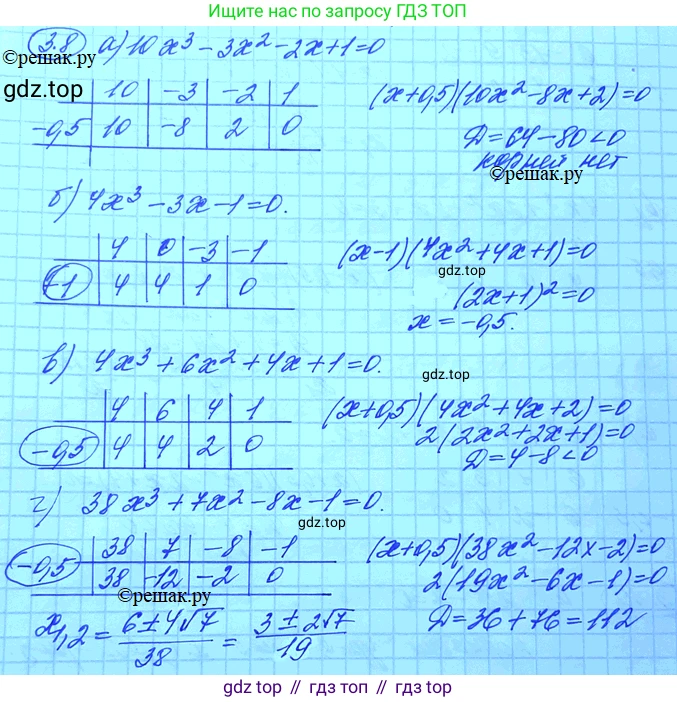 Ищите нас по запросу ГДЗ ТОП
3.8 а) 10x³ - 3x² - 2x + 1 = 0
©решак.ру
gdz.top
10 -3 -2 1
-0,5 10 -8 2 0
(x+0,5)(10x² - 8x + 2) = 0
D = 64 - 80 < 0
корней нет
©решак.ру
б) 4x³ - 3x - 1 = 0.
4 0 -3 -1
+1 4 4 1 0
(x-1)(4x² + 4x + 1) = 0
gdz.top
(2x+1)² = 0
x = -0,5.
в) 4x³ + 6x² + 4x + 1 = 0.
gdz.top
4 6 4 1
-0,5 4 4 2 0
(x+0,5)(4x² + 4x + 2) = 0
2(2x² + 2x + 1) = 0
D = 4 - 8 < 0
г) 38x³ + 7x² - 8x - 1 = 0.
gdz.top
38 7 -8 -1
-0,5 38 -12 -2 0
(x+0,5)(38x² - 12x - 2) = 0
2(19x² - 6x - 1) = 0
©решак.ру
x₁,₂ = 6±4√7/38 = 3±2√7/19
D = 36 + 76 = 112
gdz.top // гдз топ // gdz.top // гдз топ